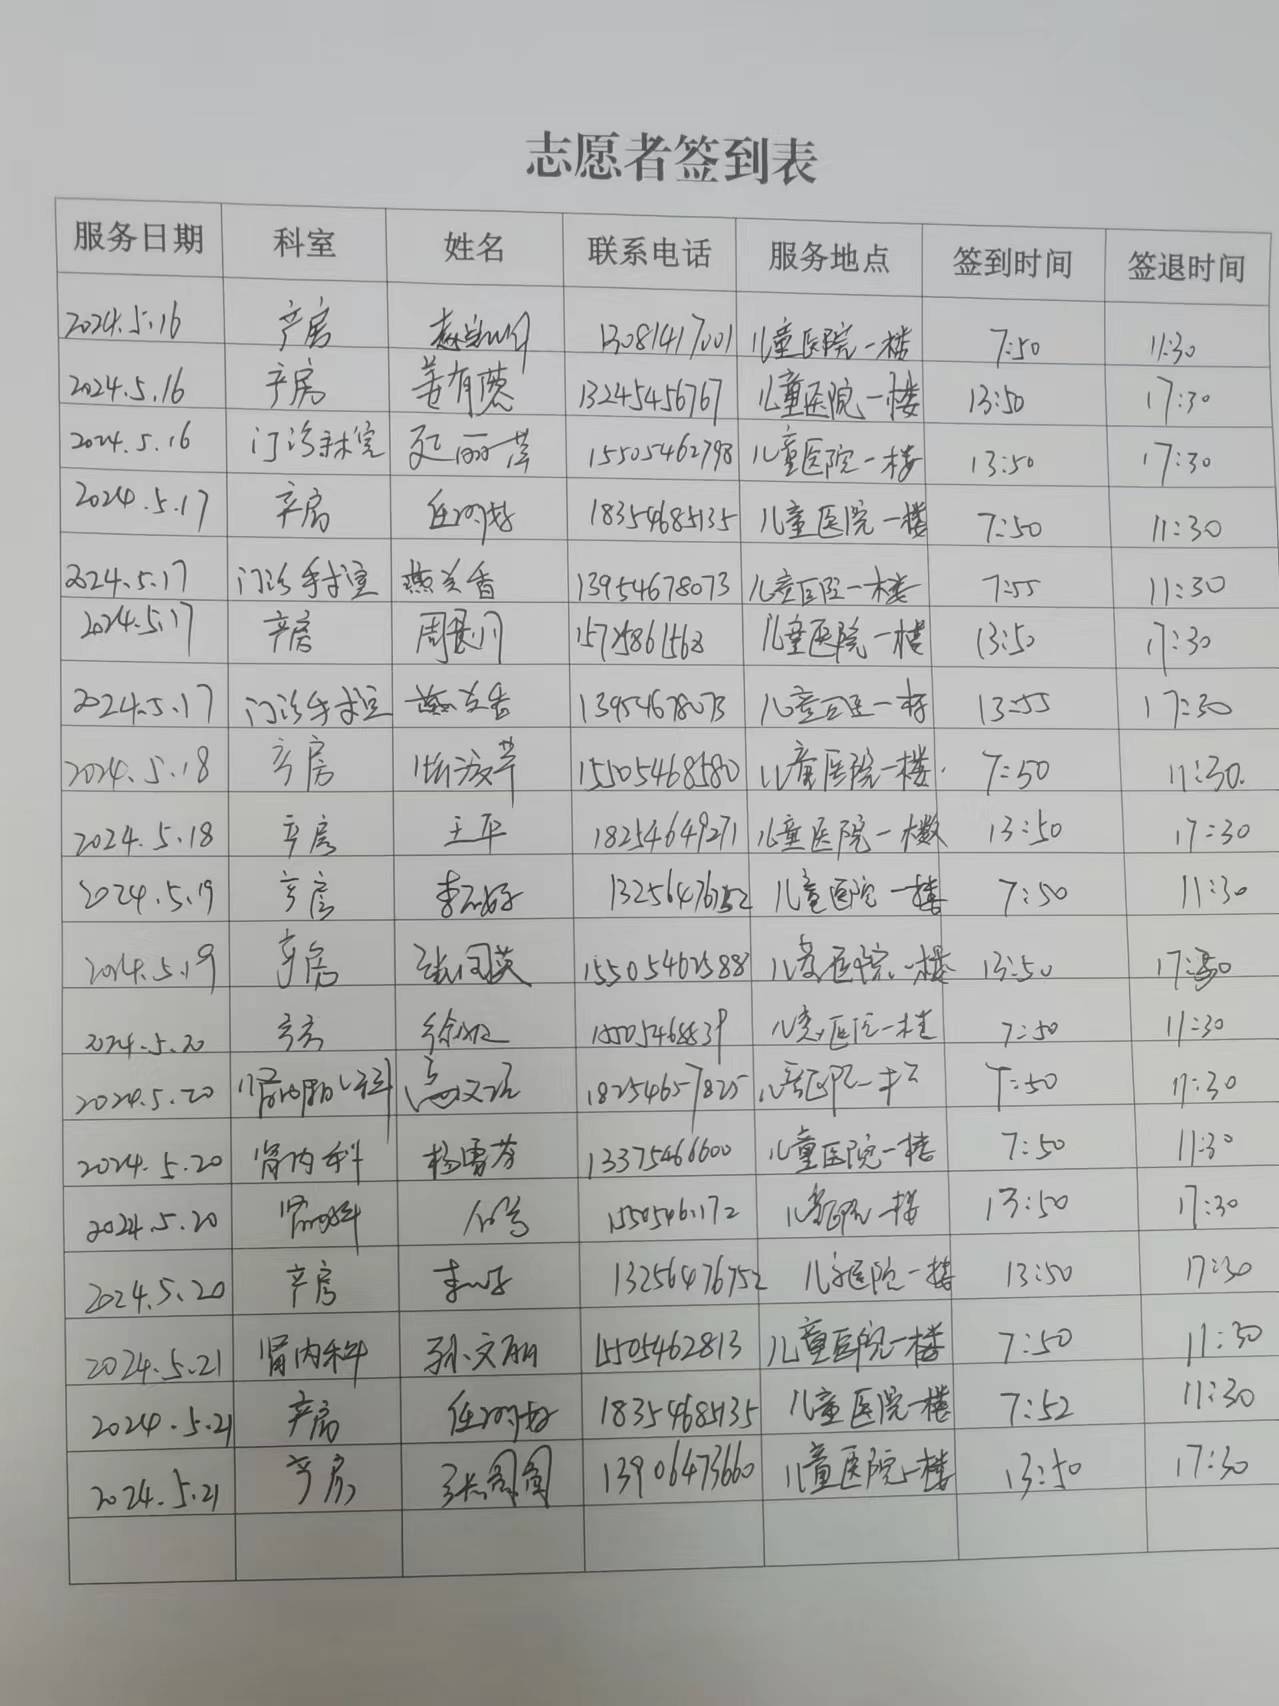 志愿者签到表
服务日期 科室 姓名 联系电话 服务地点 签到时间 签退时间
2024.5.16 产房 13081417001 儿童医院一楼 7:50 11:30
2024.5.16 产房 姜有慧 13245456767 儿童医院一楼 13:50 17:30
2024.5.16 门诊手术室 延丽萍 15505462798 儿童医院一楼 13:50 17:30
2024.5.17 产房 任 18354685135 儿童医院一楼 7:50 11:30
2024.5.17 门诊手术室 燕兰香 13954678073 儿童医院一楼 7:55 11:30
2024.5.17 产房 周 15725861568 儿童医院一楼 13:50 17:30
2024.5.17 门诊手术室 燕兰香 13954678073 儿童医院一楼 13:55 17:30
2024.5.18 产房 15505468580 儿童医院一楼. 7:50 11:30.
2024.5.18 产房 王平 18254649271 儿童医院一楼 13:50 17:30
2024.5.19 产房 李 13256476752 儿童医院一楼 7:50 11:30
2024.5.19 产房 张 15505462588 儿童医院一楼 13:50 17:30
2024.5.20 产房 徐 15505468839 儿童医院一楼 7:50 11:30
2024.5.20 肾内科 18254657825 儿童医院一楼 7:50 11:30
2024.5.20 肾内科 杨雪芬 13375466600 儿童医院一楼 7:50 11:30
2024.5.20 肾内科 儿童医院一楼 13:50 17:30
2024.5.20 产房 李 13256476752 儿童医院一楼 13:50 17:30
2024.5.21 肾内科 孙文丽 15505462813 儿童医院一楼 7:50 11:30
2024.5.21 产房 任 18354685135 儿童医院一楼 7:52 11:30
2024.5.21 产房 张圆圆 13906473660 儿童医院一楼 13:50 17:30